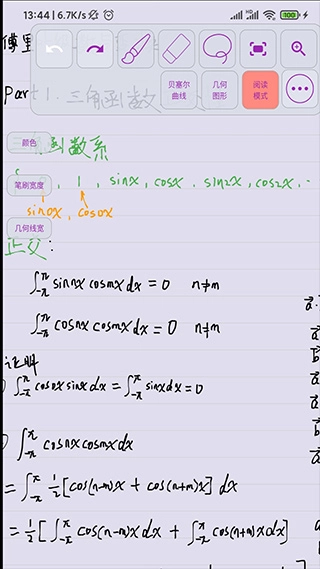 13:44 | 6.7K/s
100
贝塞尔曲线
几何图形
阅读模式
Part 1. 三角函数
颜色
函数系
笔刷宽度
, 1, sinx, cosx, sin2x, cos2x, ..
sin0x, cos0x
几何线宽
正交:
∫_{-π}^{π} sin nx cos mx dx = 0 n≠m
∫_{-π}^{π} cos nx cos mx dx = 0 n≠m
证明
∫_{-π}^{π} cos0x sinx dx = ∫_{-π}^{π} sinx dx = 0
∫_{-π}^{π} cos nx cos mx dx
= ∫_{-π}^{π} 1/2 [cos(n-m)x + cos(n+m)x] dx
= 1/2 [∫_{-π}^{π} cos(n-m)x dx + ∫_{-π}^{π} cos(n+m)x dx]